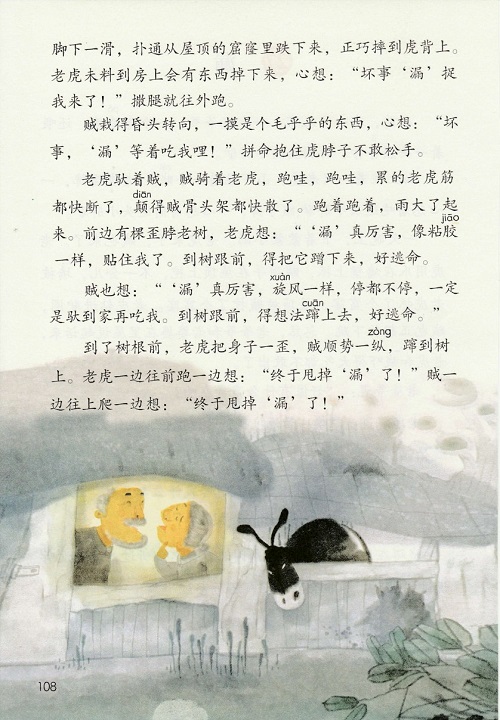 脚下一滑，扑通从屋顶的窟窿里跌下来，正巧摔到虎背上。
老虎未料到房上会有东西掉下来，心想：“坏事‘漏’捉
我来了！”撒腿就往外跑。
贼栽得昏头转向，一摸是个毛乎乎的东西，心想：“坏
事，‘漏’等着吃我哩！”拼命抱住虎脖子不敢松手。
老虎驮着贼，贼骑着老虎，跑哇，跑哇，累的老虎筋
diān
都快断了，颠得贼骨头架都快散了。跑着跑着，雨大了起
jiāo
来。前边有棵歪脖老树，老虎想：“‘漏’真厉害，像粘胶
一样，贴住我了。到树跟前，得把它蹭下来，好逃命。
xuàn
贼也想：“‘漏’真厉害，旋风一样，停都不停，一定
cuān
是驮到家再吃我。到树跟前，得想法蹿上去，好逃命。”
zòng
到了树根前，老虎把身子一歪，贼顺势一纵，蹿到树
上。老虎一边往前跑一边想：“终于甩掉‘漏’了！”贼一
边往上爬一边想：“终于甩掉‘漏’了！”
108